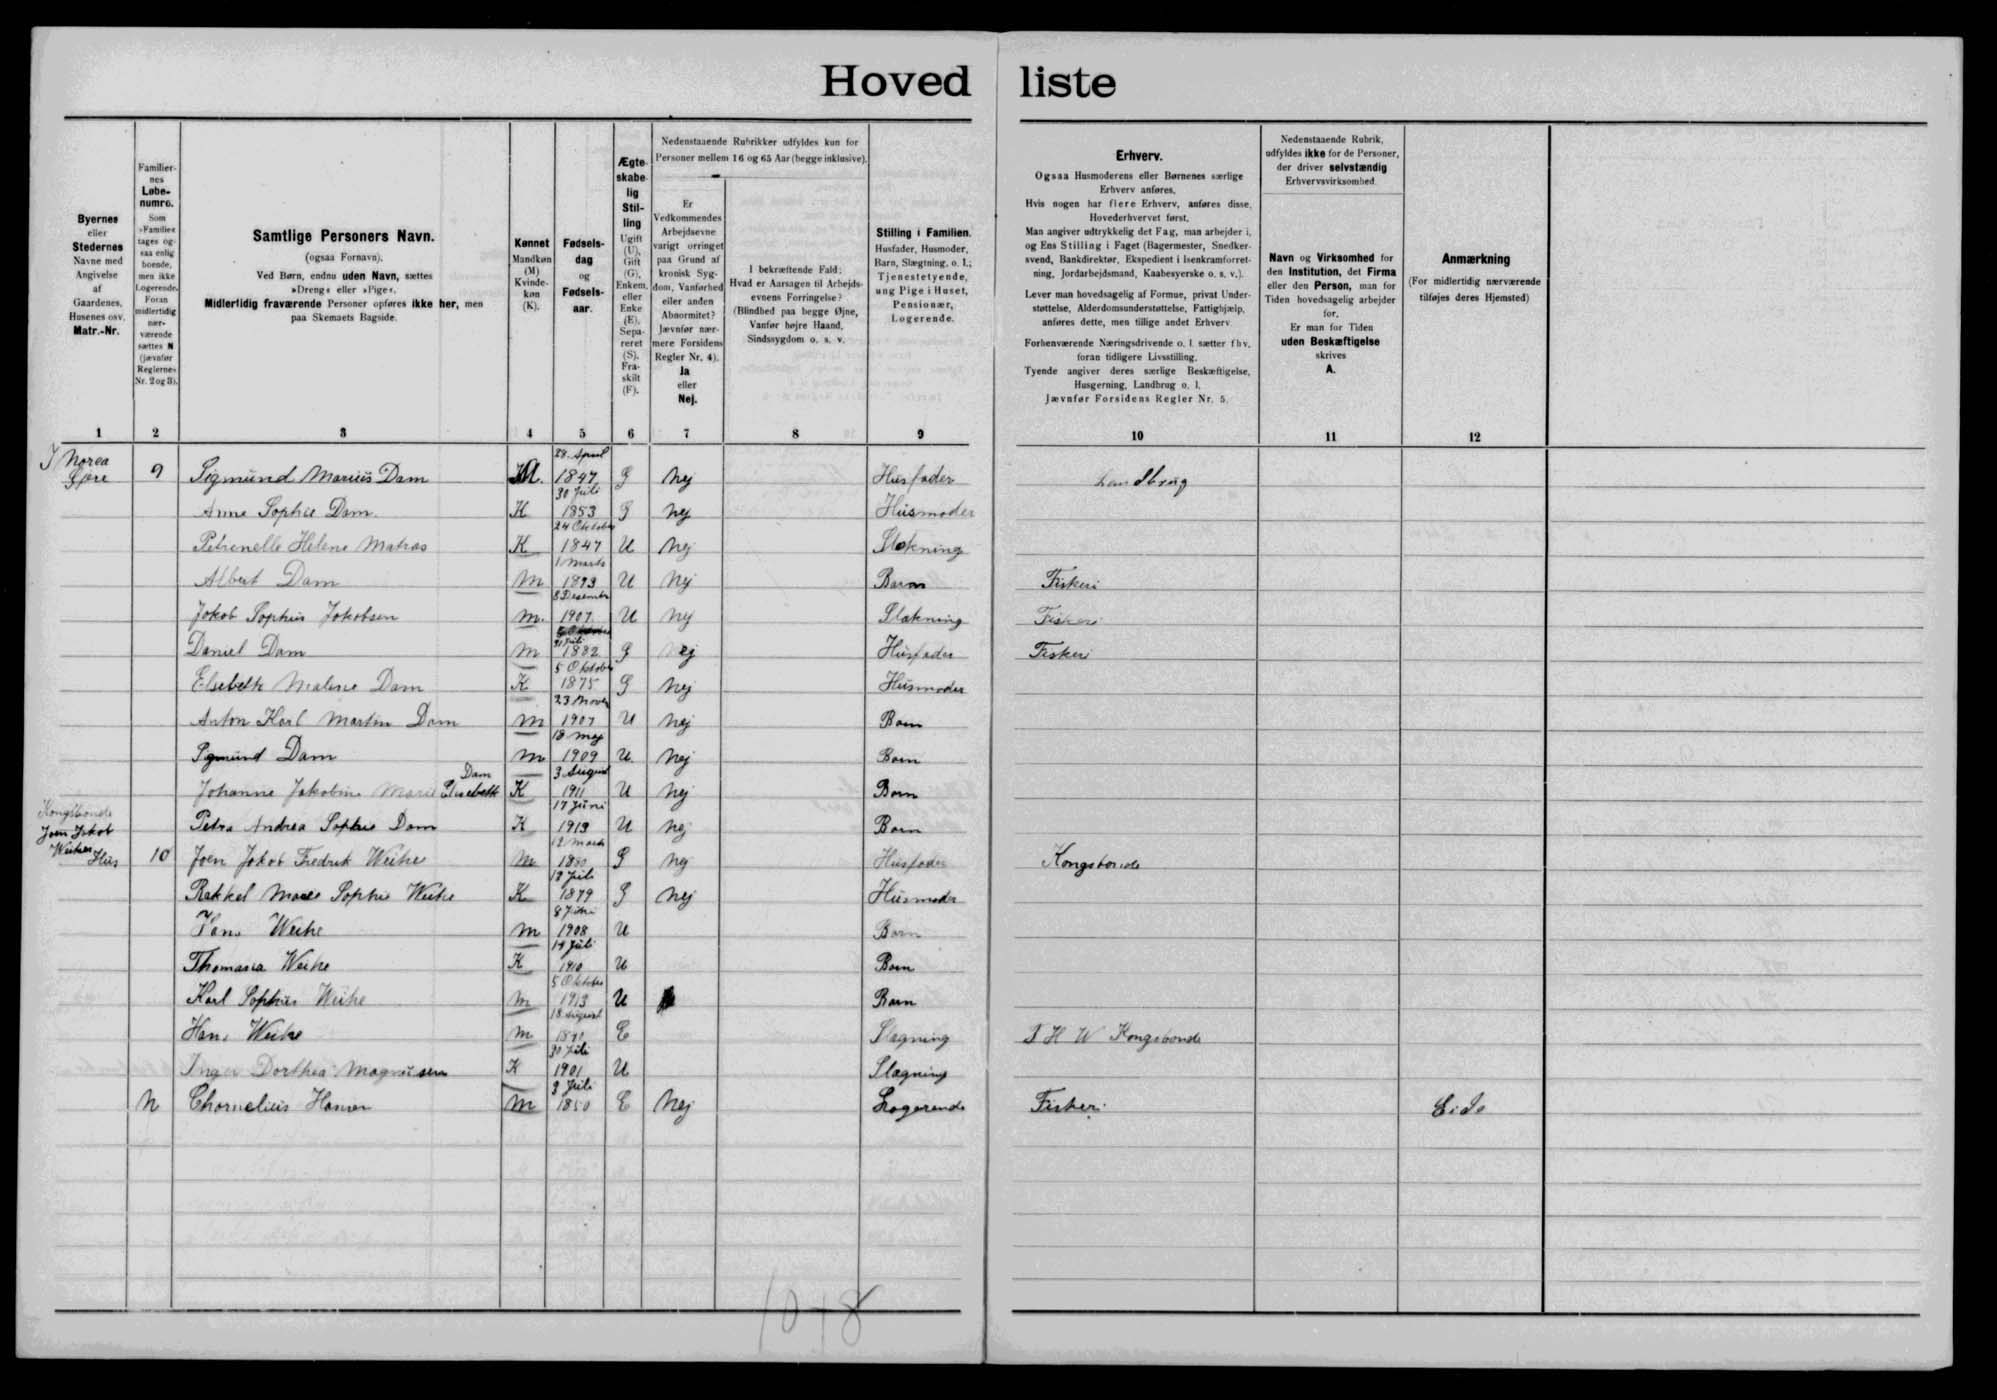 Hoved liste
Byernes
eller
Stedernes
Navne med
Angivelse
af
Gaardenes,
Husenes osv.
Matr.-Nr.
Familier-
nes
Løbe-
numre.
Som
»Familie«
tages og-
saa enlig
boende,
men ikke
Logerende.
Foran
midlertidig
nær-
værende
sættes N
(jævnfør
Reglernes
Nr. 2 og 3).
Samtlige Personers Navn.
(ogsaa Fornavn).
Ved Børn, endnu uden Navn, sættes
»Dreng« eller »Pige«.
Midlertidig fraværende Personer opføres ikke her, men
paa Skemaets Bagside.
Kønnet
Mandkøn
(M)
Kvinde-
køn
(K).
Fødsels-
dag
og
Fødsels-
aar.
Ægte-
skabe-
lig
Stil-
ling
Ugift
(U),
Gift
(G),
Enkem.
eller
Enke
(E),
Sepa-
reret
(S),
Fra-
skilt
(F).
Nedenstaaende Rubrikker udfyldes kun for
Personer mellem 16 og 65 Aar (begge inklusive).
Er
Vedkommendes
Arbejdsevne
varigt forringet
paa Grund af
kronisk Syg-
dom, Vanførhed
eller anden
Abnormitet?
Jævnfør nær-
mere Forsidens
Regler Nr. 4).
Ja
eller
Nej.
I bekræftende Fald:
Hvad er Aarsagen til Arbejds-
evnens Forringelse?
(Blindhed paa begge Øjne,
Vanfør højre Haand,
Sindssygdom o. s. v.
Stilling i Familien.
Husfader, Husmoder,
Barn, Slægtning, o. l.;
Tjenestetyende,
ung Pige i Huset,
Pensionær,
Logerende.
Erhverv.
Ogsaa Husmoderens eller Børnenes særlige
Erhverv anføres.
Hvis nogen har flere Erhverv, anføres disse,
Hovederhvervet først.
Man angiver udtrykkelig det Fag, man arbejder i,
og Ens Stilling i Faget (Bagermester, Snedker-
svend, Bankdirektør, Ekspedient i Isenkramforret-
ning, Jordarbejdsmand, Kaabesyerske o. s. v.).
Lever man hovedsagelig af Formue, privat Under-
støttelse, Alderdomsunderstøttelse, Fattighjælp,
anføres dette, men tillige andet Erhverv.
Forhenværende Næringsdrivende o. l. sætter fhv.
foran tidligere Livsstilling.
Tyende angiver deres særlige Beskæftigelse,
Husgerning, Landbrug o. l.
Jævnfør Forsidens Regler Nr. 5.
Nedenstaaende Rubrik,
udfyldes ikke for de Personer,
der driver selvstændig
Erhvervsvirksomhed.
Navn og Virksomhed for
den Institution, det Firma
eller den Person, man for
Tiden hovedsagelig arbejder
for.
Er man for Tiden
uden Beskæftigelse
skrives
A.
Anmærkning
(For midlertidig nærværende
tilføjes deres Hjemsted)
1 2 3 4 5 6 7 8 9 10 11 12
I Norea Gjøre 9 Sigmund Marius Dam M. 28. April 1847 G Nej Husfader Landbrug
Anne Sophie Dam K 30 Juli 1853 G Nej Husmoder
Petrenelle Helene Matras K 24 Oktober 1847 U Nej Slekning
Albert Dam M 1 Marts 1893 U Nej Barn Fiskeri
Jokob Sophus Jakobsen M. 8 Desember 1907 U Nej Slakning Fiskeri
Daniel Dam M 31 Juli 1882 G Nej Husfader Fiskeri
Elsebeth Malene Dam K 5 Oktober 1875 G Nej Husmoder
Anton Karl Martin Dam M 23 Novem 1907 U Nej Barn
Sigmund Dam M 18 Mej 1909 U Nej Barn
Johanne Jakobine Marie Elsebeth Dam K 3 August 1911 U Nej Barn
Petra Andrea Sophie Dam K 17 Juni 1913 U Nej Barn
Kongsbonde Joen Jokob Weihes Hus 10 Joen Jokob Fredrik Weihe M 12 Marts G Nej Husfader Kongsbonde
Rakkel Marie Sophie Weihe K 13 Juli 1879 G Nej Husmoder
Weihe M 8 1908 U Barn
Thomasia Weihe K 14 Juli 1910 U Barn
Karl Sophus Weihe M 5 Oktober 1913 U Barn
Hans Weihe M 18 August E Slagning J H W Kongsbonde
Inger Dorthea Magnusen K 30 Juli 1901 U Slagning
N Chornelius Hansen M 3 Juli 1850 E Nej Logerende Fiskeri Eide
10+8